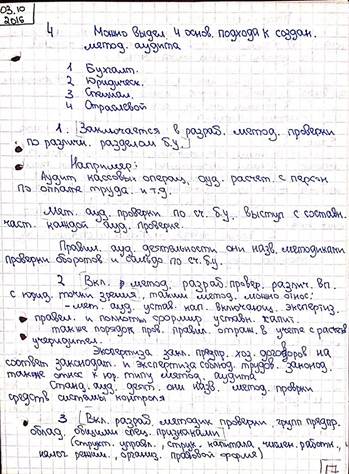 03.10
2016
4 Можно выдел. 4 основ. подхода к создан.
метод. аудита
1 Бухгалт.
2 Юридическ.
3 Специал.
4 Отраслевой
1. [Заключается в разраб. метод. проверки
по различн. разделам б.у.]
Например:
Аудит кассовых операц, ауд. расчет. с персон
по оплате труда и т.д.
Мет. ауд. проверки по сч. б.у. выступ с составн.
част. каждой ауд. проверке.
Правил. ауд. деятельности они назв. методиками
проверки оборотов и сальдо по сч. б.у.
2 [Вкл. в метод. разраб. провер. различ. вп.
с юрид. точки зрения, таким метод. можно относ:
- мет. ауд. устав. кап. включающ. экспертиз.
правил. и полноты формир уставн. капит.
также порядок пров. правил. отраж. в учете с расчетов
учередител.
Экспертиза закл. предпр. хоз. договоров на
соответ законодат. и экспертиза соблюд. трудов. законод.
также относ к юр. типу метод. аудита
Станд. ауд. деят. они назв. метод. проверки
средств системы контроля
3 [Вкл. разраб. методик проверки групп предпр.
облад. общими спец. признаками]
(структ. управл., струк. капитала, числен. работн.,
налог режим., организ. правовая форма)